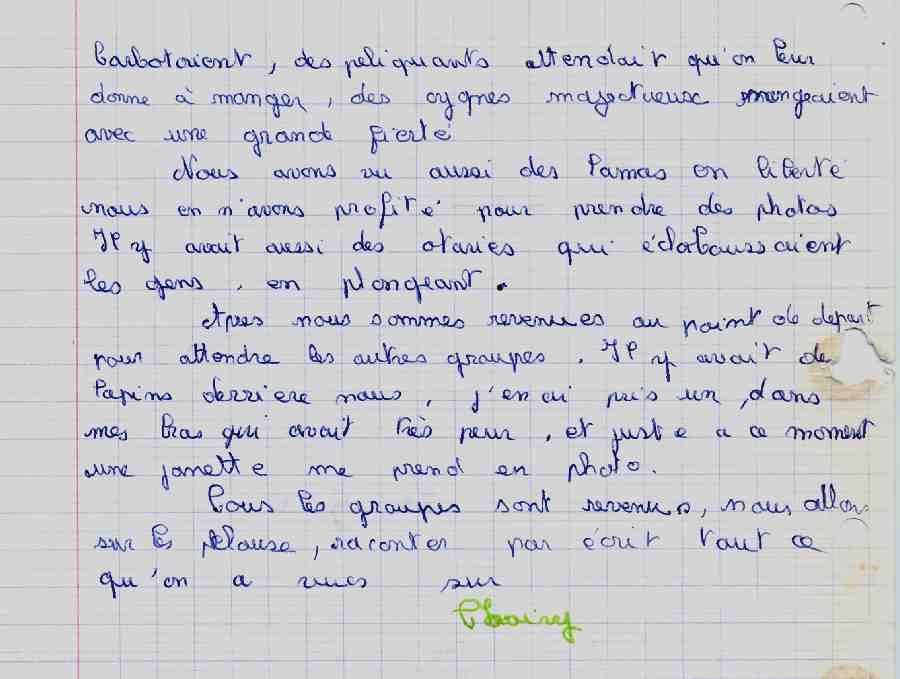 barbotaient, des peliquants attendait qu'on leur
donne à manger, des cygnes majectueux mengeaient
avec une grande fierté
Nous avons vu aussi des lamas en liberté
nous en n'avons profité pour prendre des photos
Il y avait aussi des otaries qui éclaboussaient
les gens, en plongeant.
Apres nous sommes revenues au point de depart
pour attendre les autres groupes. Il y avait de
lapins derriere nous, j'en ai pris un, dans
mes bras qui avait très peur, et juste a ce moment
une janette me prend en photo.
Tous les groupes sont revenus, nous allon
sur les pelouse, raconter par écrit tout ce
qu'on a vues sur
Thoiry